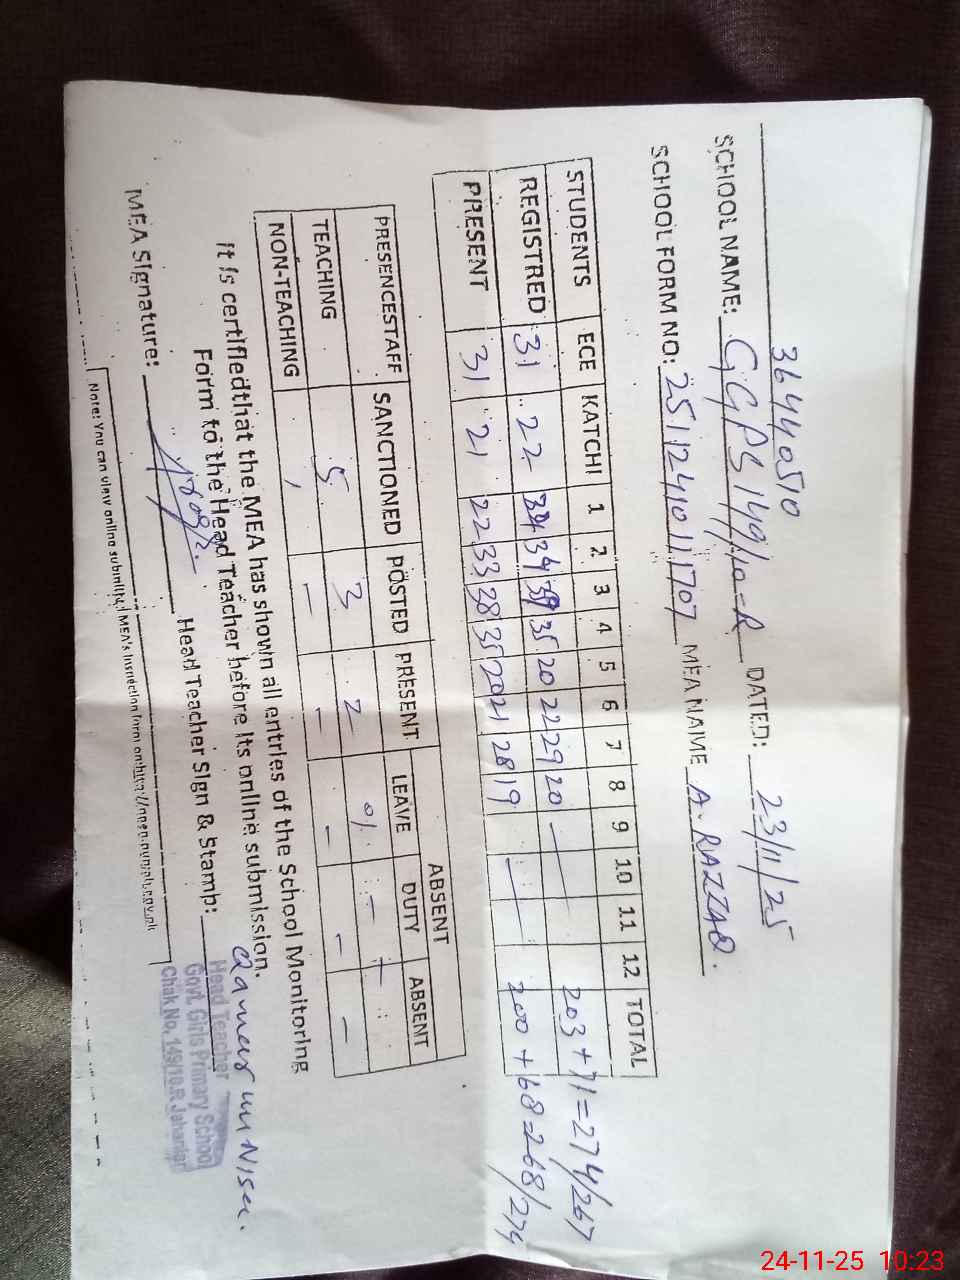 36440510
SCHOOL NAME: GGPS 149/10-R DATED: 23/11/25
SCHOOL FORM NO: 25112410111707 MEA NAME A. RAZZAQ.
STUDENTS ECE KATCHI 1 2 3 4 5 6 7 8 9 10 11 12 TOTAL
REGISTRED 31 22 34 35 20 22 29 20 — 203+71=274/267
PRESENT 31 21 22 33 38 35 20 21 28 19 — 200+68=268/274
ABSENT
PRESENCESTAFF SANCTIONED POSTED PRESENT LEAVE DUTY ABSENT
TEACHING 5 3 2 - -
NON-TEACHING - - - - - -
It is certifiedthat the MEA has shown all entries of the School Monitoring
Form to the Head Teacher before its online submission.
MEA Signature: Head Teacher Sign & Stamp: Qamar un Nisa.
Head Teacher
Govt. Girls Primary School
Chak No. 149/10.R Jahanian
Note: You can view online submitted MEA's Inspection form on
24-11-25 10:23